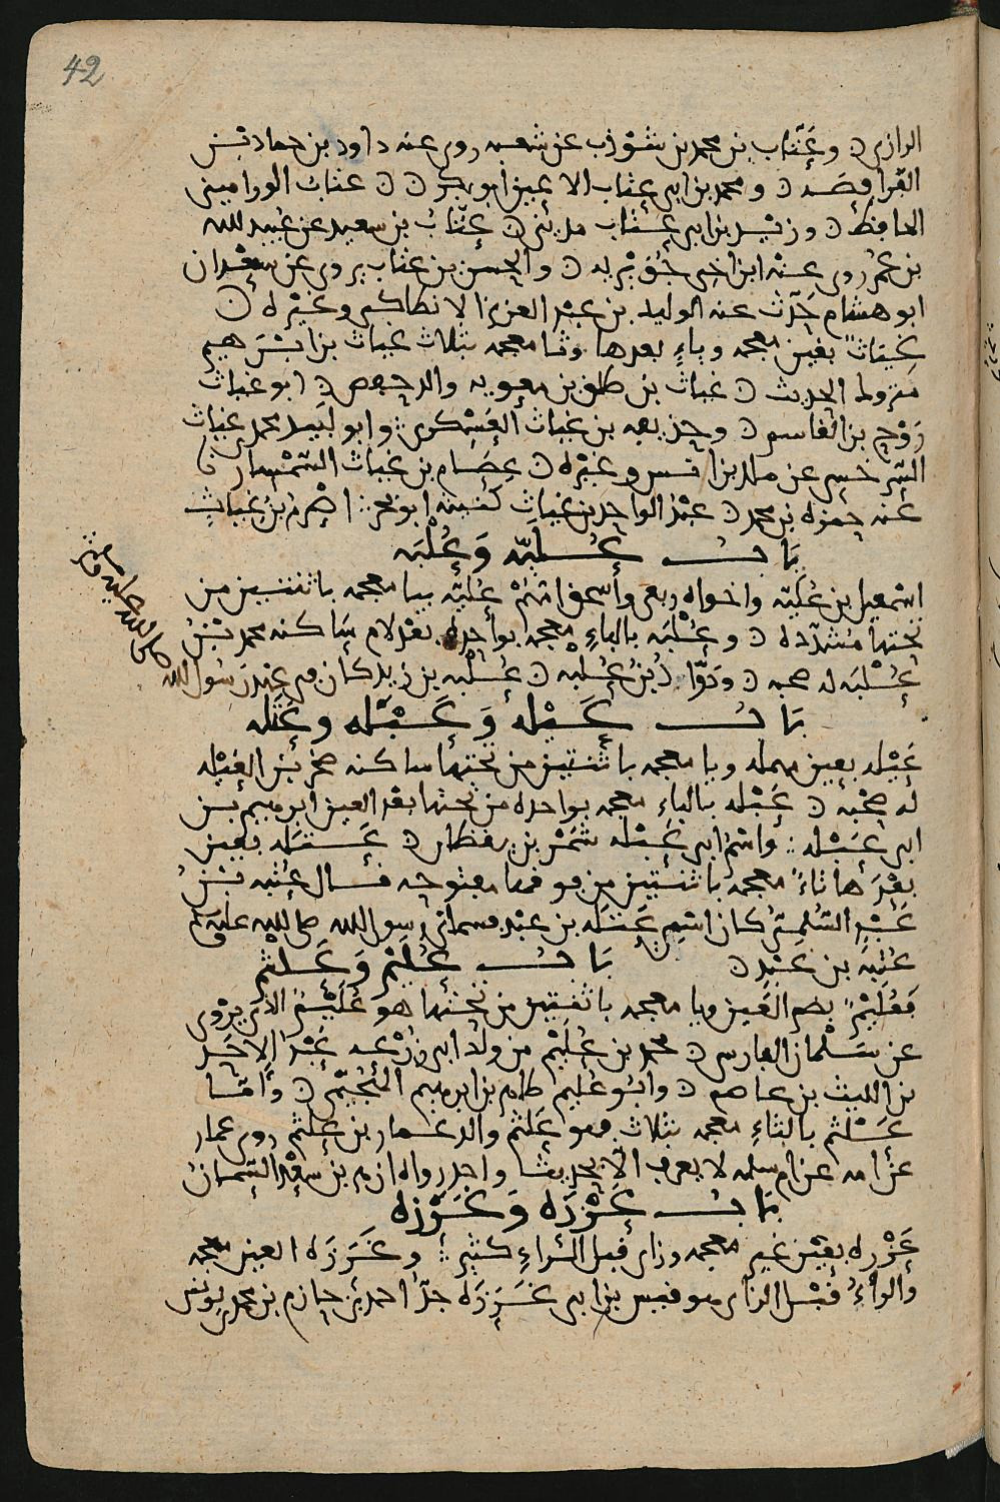 42
الرازي ۞ وعَتّاب بن محمد بن شوذب عن شعبه روى عنه داود بن حماد بن
الفرافصه ۞ ومحمد بن ابي عتاب الاعين ابو بكر ۞ ۞ عتاب الوراميني
الحافظ ۞ وزيد بن ابي عتاب مديني ۞ عتاب بن سعيد عن عبيد الله
بن عمر روى عنه ابن اخي جُوَيْريه ۞ والحسن بن عتاب يروى عن سعدان
ابو هشام حدّث عنه الوليد بن عبد العزيز الانطاكي وغيره ۞
غياث بغين معجمه وياءٍ بعدها وثا معجمه بثلاث غياث بن ابرهيم
متروك الحديث ۞ غياث بن طلق بن معويه والد حفص ۞ ابو غياث
رَوْح بن القاسم ۞ وحذيفه بن غياث العسكري ۞ وابو لبيد محمد بن غياث
السرخسي عن ملك بن انس وغيره ۞ عصام بن غياث السمسار ۞
عنه حمزه بن محمد ۞ عبد الواحد بن غياث كنيته ابو بحر اصرم بن غياث
بَابُ عُلَيّه وَعُلْبَه
اسمعيل بن عُلَيّه واخواه ربعي واسحق امهم عُلَيّه بيا معجمه باثنتين من
تحتها مُشدّده ۞ وعُلْبَه بالباءِ معجمه بواحده بعد لام ساكنه محمد بن
عُلْبَه له صحبه ۞ ودَوّاد بن عُلبه ۞ عُلْبه بن زيد كان من عند رسول الله
صلى الله عليه وسلم
بَابُ عَيْله وَعَبْله وعَتَله
عَيْله بعين مهمله ويا معجمه باثنتين من تحتها ساكنه صخر بن العَيْله
له صُحْبه ۞ عَبْله بالباءِ معجمه بواحده من تحتها بعد العين ابرهيم بن
ابي عَبْله واسم ابي عَبْله شَمْر بن يقظان ۞ عَتَله بعين
بعْدَها تاءً معجمه باثنتين من فوقها مفتوحه قال عُتْبه بن
عَبْدٍ السُّلمي كان اسمي عَتَله بن عبد فسماني رسول الله صلى الله عليه وسلم
عُتْبَة بن عَبْدٍ ۞ بَابُ عُلَيْم وَعَلْثم
فعُلَيْم بضم العَين ويا معجمه باثنتين من تحتها هو عُلَيْم الذي يروى
عن سَلْمان الفارسي ۞ محمد بن عُلَيْم من ولد ابي زرعه عبد الاحد
بن الليث بن عاصم ۞ وابو عُليم طام بن ابرهيم النُجَيْمي ۞ وامّا
عَلْثم بالثاءِ معجمه بثلاث فهو عَلثم والد عمار بن عَلثم روى عمار
عن امه عن ام سلمه لا يعرف الا بحديث واحد رواه ازهر بن سعد السمان
بَابُ عَزْرَه وَغَرَزه
عَزْره بعَيْن غير معجمه وزاى قبل الراءِ كثير وغَرَزَه الغين معجمه
والراءُ قبْل الزاى هو قيس بن ابي غَرَزَه جدّ احمد بن حازم بن محمد بن يونس